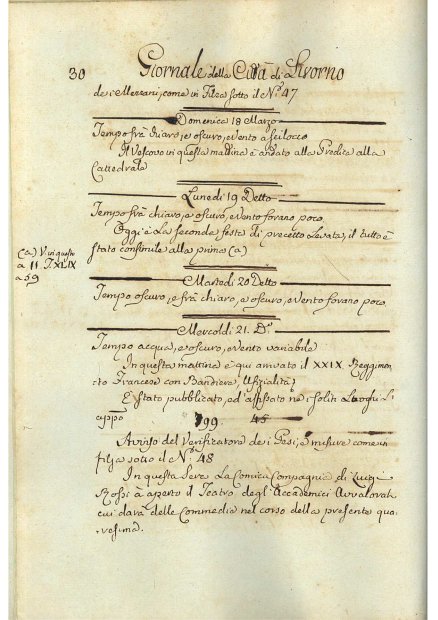 30 Giornale della Città di Livorno
dei Mezzani, come in Filza sotto il N.º 47
Domenica 18 Marzo
Tempo frà chiaro, e oscuro, e vento a scilocco
Il Vescovo in questa mattina è andato alla Predica alla
Cattedrale
Lunedì 19 Detto
Tempo frà chiaro, e oscuro, e vento forano poco
Oggi è La seconda festa di precetto Levata, il tutto è
stato consimile alla prima (a)
(a) V. in questo
à 11. T. XLIX
a 59
Martedì 20 Detto
Tempo oscuro, e frà chiaro, e oscuro, e vento forano poco
Mercoldì 21. D.º
Tempo acqua, e oscuro, e vento variabile
In questa mattina è qui arrivato il XXIX. Reggimen
to Francese con Bandiera, Ufizialità
È Stato pubblicato, ed affissato ne i soliti Luoghi L
799 45
Avviso del Verificatore dei Pesi, e misure come in
filza sotto il N.º 48
In questa Sera La Comica Compagnia di Luigi
Rossi à aperto il Teatro degl'Accademici Avvalorati
cui darà delle Commedie nel corso della presente qua
resima.